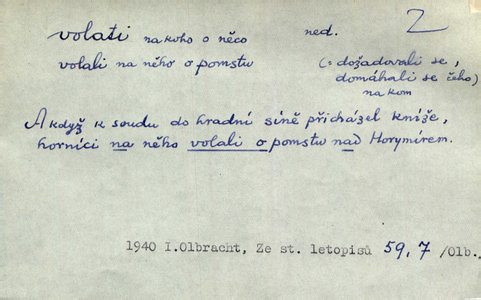 volati na koho o něco ned. 2
volali na něho o pomstu (= dožadovali se,
domáhali se čeho)
na kom
A když k soudu do hradní síně přicházel kníže,
horníci na něho volali o pomstu nad Horymírem.
1940 I.Olbracht, Ze st. letopisů 59,7 /Olb.,